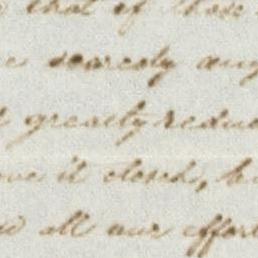 that of those
scarcely any
greatly reduc
it closed,
all our effort